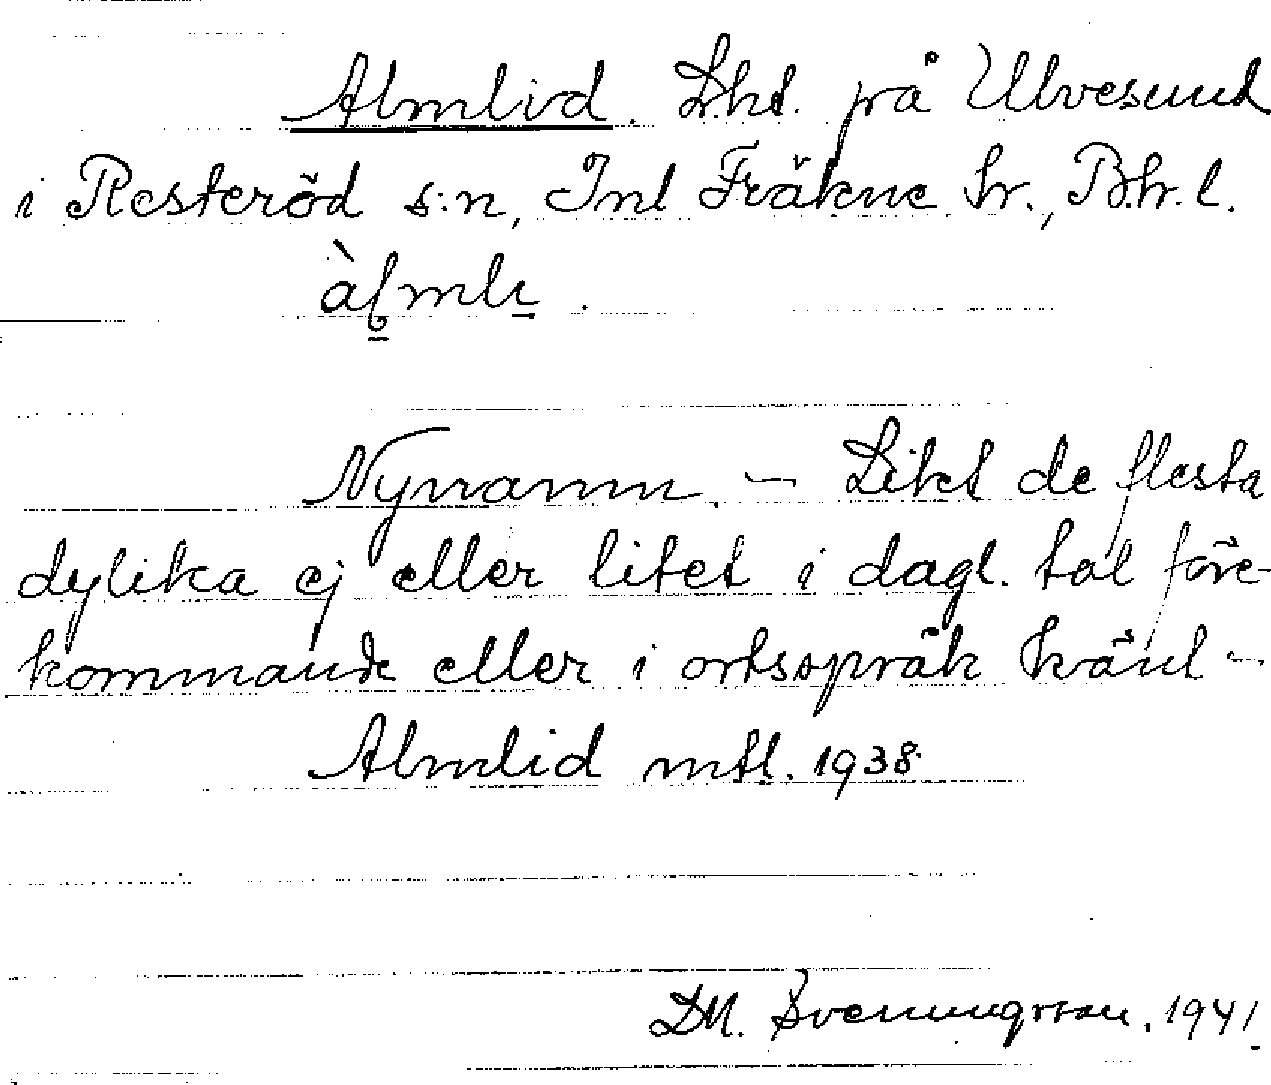 Almlid. Lht. på Ulvesund
i Resteröd s:n, Inl Fräkne hr., B.hr. l.
Nynamn. – Likt de flesta
dylika ej eller litet i dagl. tal före-
kommande eller i ortsspråk känt –
Almlid mtl. 1938.
D.N. Svenningsson. 1941